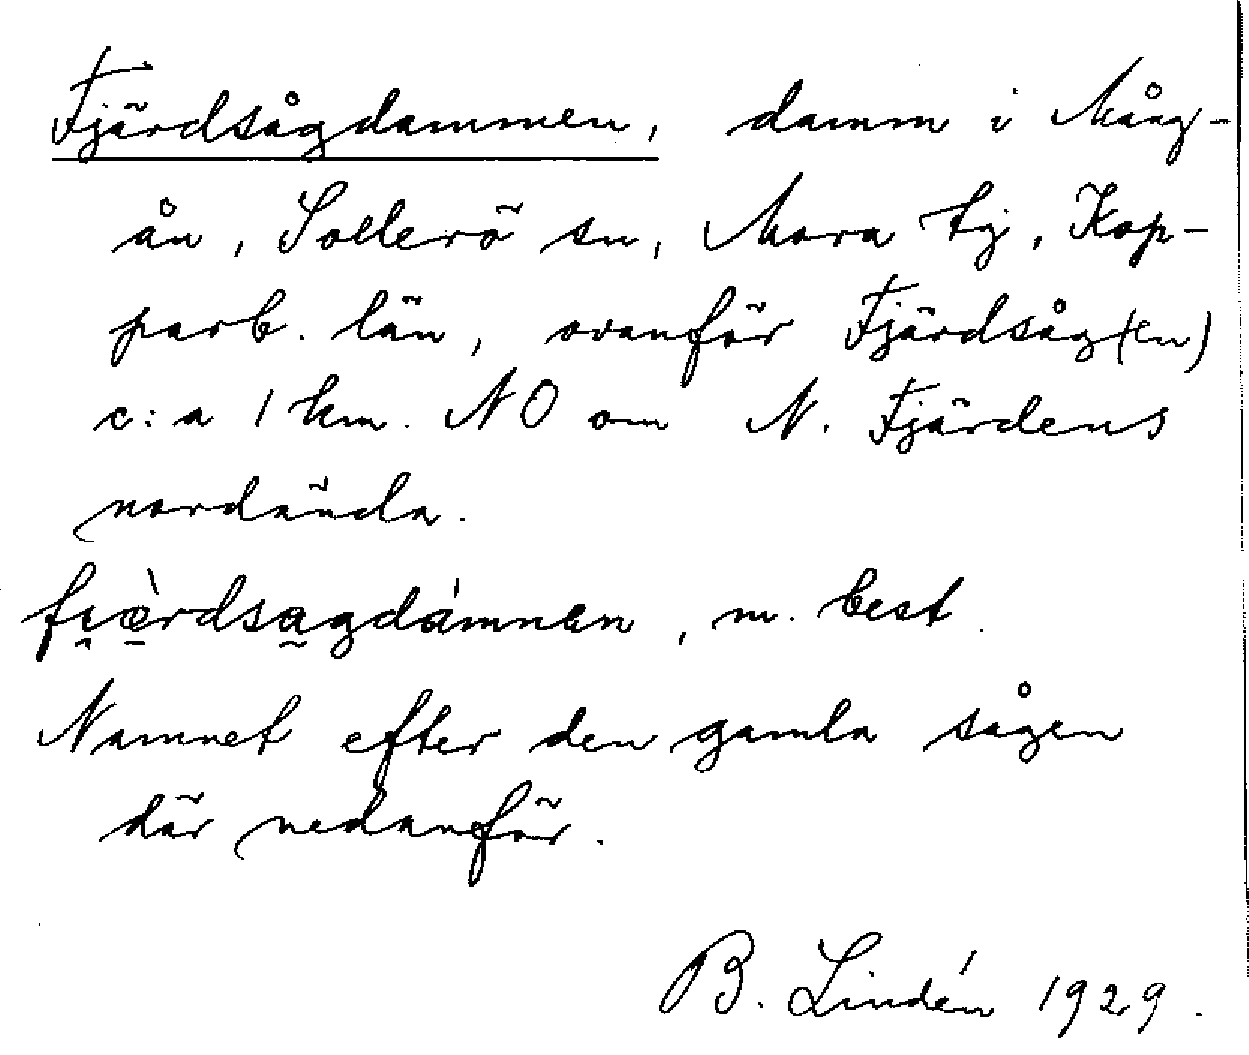 Fjärdsågdammen, damm i Mång-
ån, Sollerö sn, Mora tg, Kop-
parb. län, ovanför Fjärdsåg(en)
c:a 1 km. NO om N. Fjärdens
nordända.
fi̯æ̀rdsagdámnen, m. best.
Namnet efter den gamla sågen
där nedanför.
B. Lindén 1929.